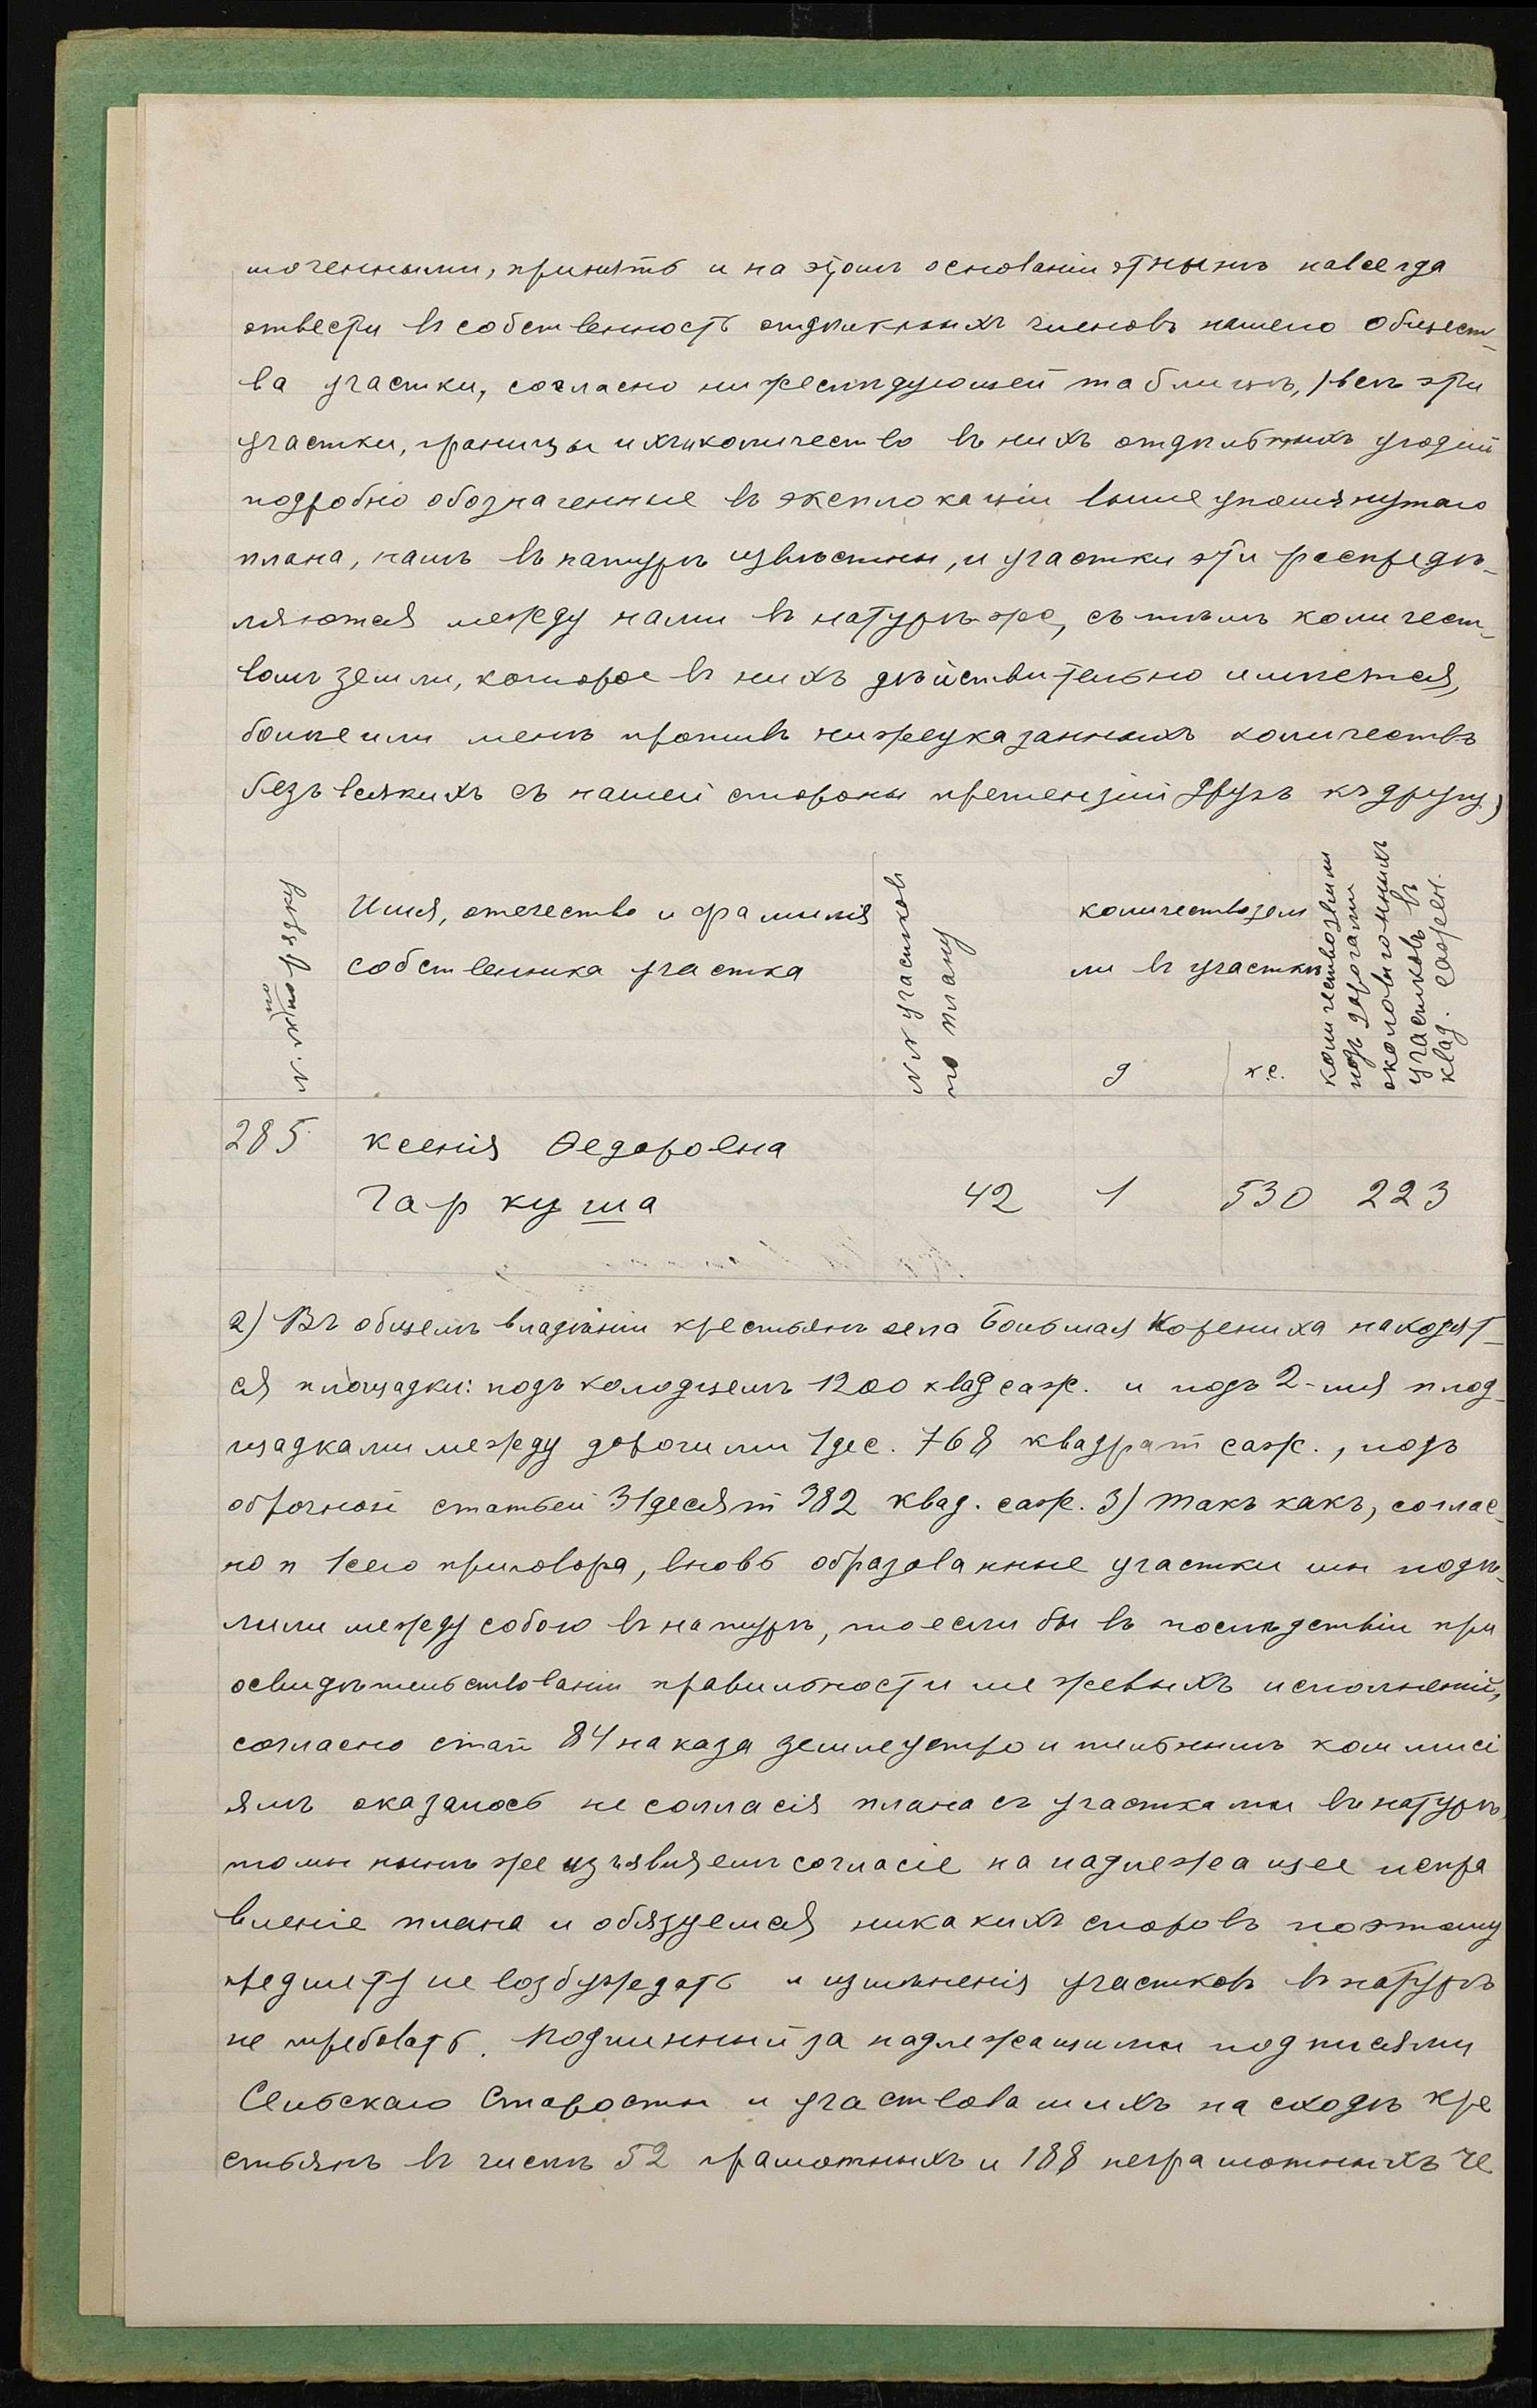 моченными, принять и на этомъ основаніи отнынѣ навсегда
отвести въ собственность отдѣльныхъ членовъ нашего Общест-
ва участки, согласно нижеслѣдующей таблицѣ, /всѣ эти
участки, границы ихъ и количество въ нихъ отдѣльныхъ угодій
подробно обозначенные въ экспликаціи вышеупомянутаго
плана, намъ въ натурѣ извѣстны, и участки эти распредѣ-
ляются между нами въ натурѣ же, съ тѣмъ количест-
вомъ земли, которое въ нихъ дѣйствительно имѣется,
болѣе или менѣ противъ нижеуказанныхъ количествъ
безъ всякихъ съ нашей стороны претензій другъ къ другу)
№.№ по порядку
Имя, отечество и фамилія
собственника участка
№№ участковъ
по плану
количество зем
ли въ участкѣ
д
к.с.
количество земли
подъ дорогами
около
участковъ въ
квад. сажен.
285 Ксенія Ѳедоровна
Гаркуша 42 1 530 223
2) Въ общемъ владѣніи крестьянъ села Большая Корениха находят-
ся площадки: подъ колодцемъ 1200 квад саж. и подъ 2-мя площ-
щадками между дорогими 1 дес. 768 квадрат саж., подъ
оброчной статьей 31 десят 382 квад. саж. 3) Такъ какъ, соглас-
но п 1 сего приговора, вновь образованные участки мы подѣ-
лили между собою въ натурѣ, то если бы въ послѣдствіи при
освидѣтельствованіи правильности межевыхъ исполненій,
согласно стат 84 наказа землеустроительнымъ коммисі
ямъ оказалось не согласія плана съ участками въ натурѣ,
то мы нынѣ же изъявляемъ согласіе на надлежащее испра
вленіе плана и обязуемся никакихъ споровъ поэтому
предмету не возбуждать и измѣненія участковъ въ натурѣ
не требовать. Подлинный за надлежащими подписями
Сельскаго Старосты и участвовашихъ на сходѣ кре
стьянъ въ числѣ 52 грамотныхъ и 188 неграмотныхъ че